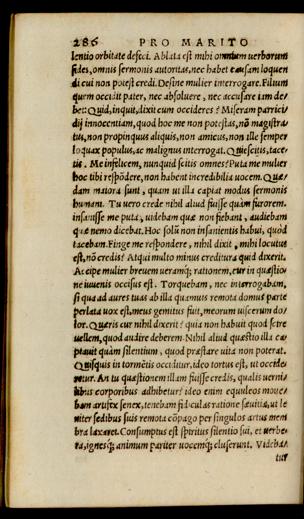 286 PRO MARITO
lentio orbitate defeci. Ablata est mihi omnium uerborum
fides, omnis sermonis autoritas, nec habet causam loquen
di cui non potest credi. Desine mulier interrogare. Filium
quem occidit pater, nec absoluere, nec accusare iam de-
bet: Quid, inquit, dixit cum occideres? Miseram parrici-
dij innocentiam, quod hoc me non potestas, nō magistra-
tus, non propinquus aliquis, non amicus, non ille semper
loquax populus, ac malignus interrogat. Quiescitis, tace-
tis. Me infelicem, nunquid scitis omnes? Puta me mulier
hoc tibi respōdere, non habent incredibilia uocem. Quæ-
dam maiora sunt, quàm ut illa capiat modus sermonis
humani. Tu uero crede nihil aliud fuisse quàm furorem.
insanisse me puta, uidebam quæ non fiebant, audiebam
quæ nemo dicebat. Hoc solū non insanientis habui, quòd
tacebam. Finge me respondere, nihil dixit, mihi locutus
est, nō credis? Atqui multo minus creditura quid dixerit.
Accipe mulier breuem ueramq; rationem, cur in quæstio-
ne iuuenis occisus est. Torquebam, nec interrogabam,
si qua ad aures tuas ab illa quamuis remota domus parte
perlata uox est, meus gemitus fuit, meorum uiscerum do-
lor. Quæris cur nihil dixerit? quia non habuit quod scire
uellem, quod audire deberem. Nihil aliud quæstio illa ca-
ptauit quàm silentium, quod præstare uita non poterat.
Quisquis in tormētis occiditur, ideo tortus est, ut occide-
retur. An tu quæstionem illam fuisse credis, qualis uerni-
libus corporibus adhibetur? ideo enim equuleos moue-
bam artifex senex, tenebam fidiculas ratione sæuitiæ, ut le
niter sedibus suis remota cōpago per singulos artus mem
bra laxaret. Consumptus est spiritus silentio sui, et uerbe-
ra, ignesq; animum pariter uocemq; cluserunt. Videba-
tur